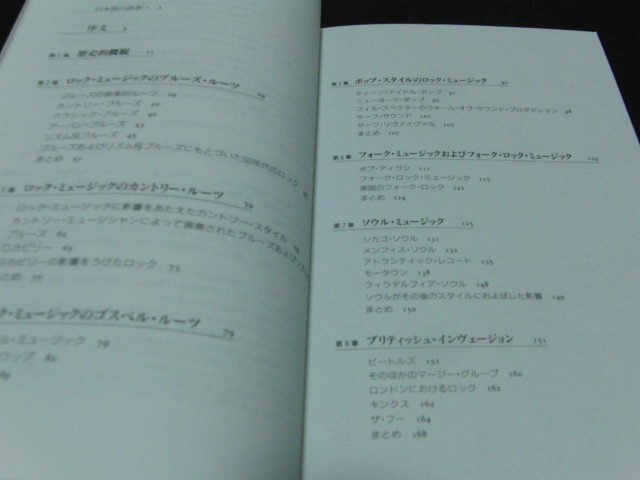 日本版の読者へ
序文
第1章 歴史的概観 11
第2章 ロック・ミュージックのブルーズ・ルーツ 19
ブルーズの音楽的ルーツ
カントリー・ブルーズ 30
クラシック・ブルーズ
アーバン・ブルーズ 43
リズム&ブルーズ 45
ブルーズおよびリズム&ブルーズにもとづいた50年代のロック
まとめ 57
ロック・ミュージックのカントリー・ルーツ 59
ロック・ミュージックに影響をあたえたカントリー・スタイル
カントリー・ミュージシャンによって演奏されたブルーズおよび
ブルーズ 65
ロカビリー 67
ロカビリーの影響をうけたロック 73
まとめ 77
ク・ミュージックのゴスペル・ルーツ 79
ル・ミュージック 79
ウップ 82
89
第5章 ポップ・スタイルのロック・ミュージック 91
ティーン・アイドル・ポップ 91
ニューヨーク・ポップ 95
フィル・スペクターのウォール・オヴ・サウンド・プロダクション 98
サーフ・サウンド 101
サーフ・ソヴァイヴァル 103
まとめ 107
第6章 フォーク・ミュージックおよびフォーク・ロック・ミュージック 109
ボブ・ディラン 111
フォーク・ロック・ミュージック 115
英国のフォーク・ロック 121
まとめ 124
第7章 ソウル・ミュージック 125
シカゴ・ソウル 131
メンフィス・ソウル 132
アトランティック・レコード 135
モータウン 138
フィラデルフィア・ソウル 148
ソウルがその後のスタイルにおよぼした影響 149
まとめ 150
第8章 ブリティッシュ・インヴェージョン 151
ビートルズ 151
そのほかのマージー・グループ 160
ロンドンにおけるロック 162
キンクス 162
ザ・フー 164
まとめ 168